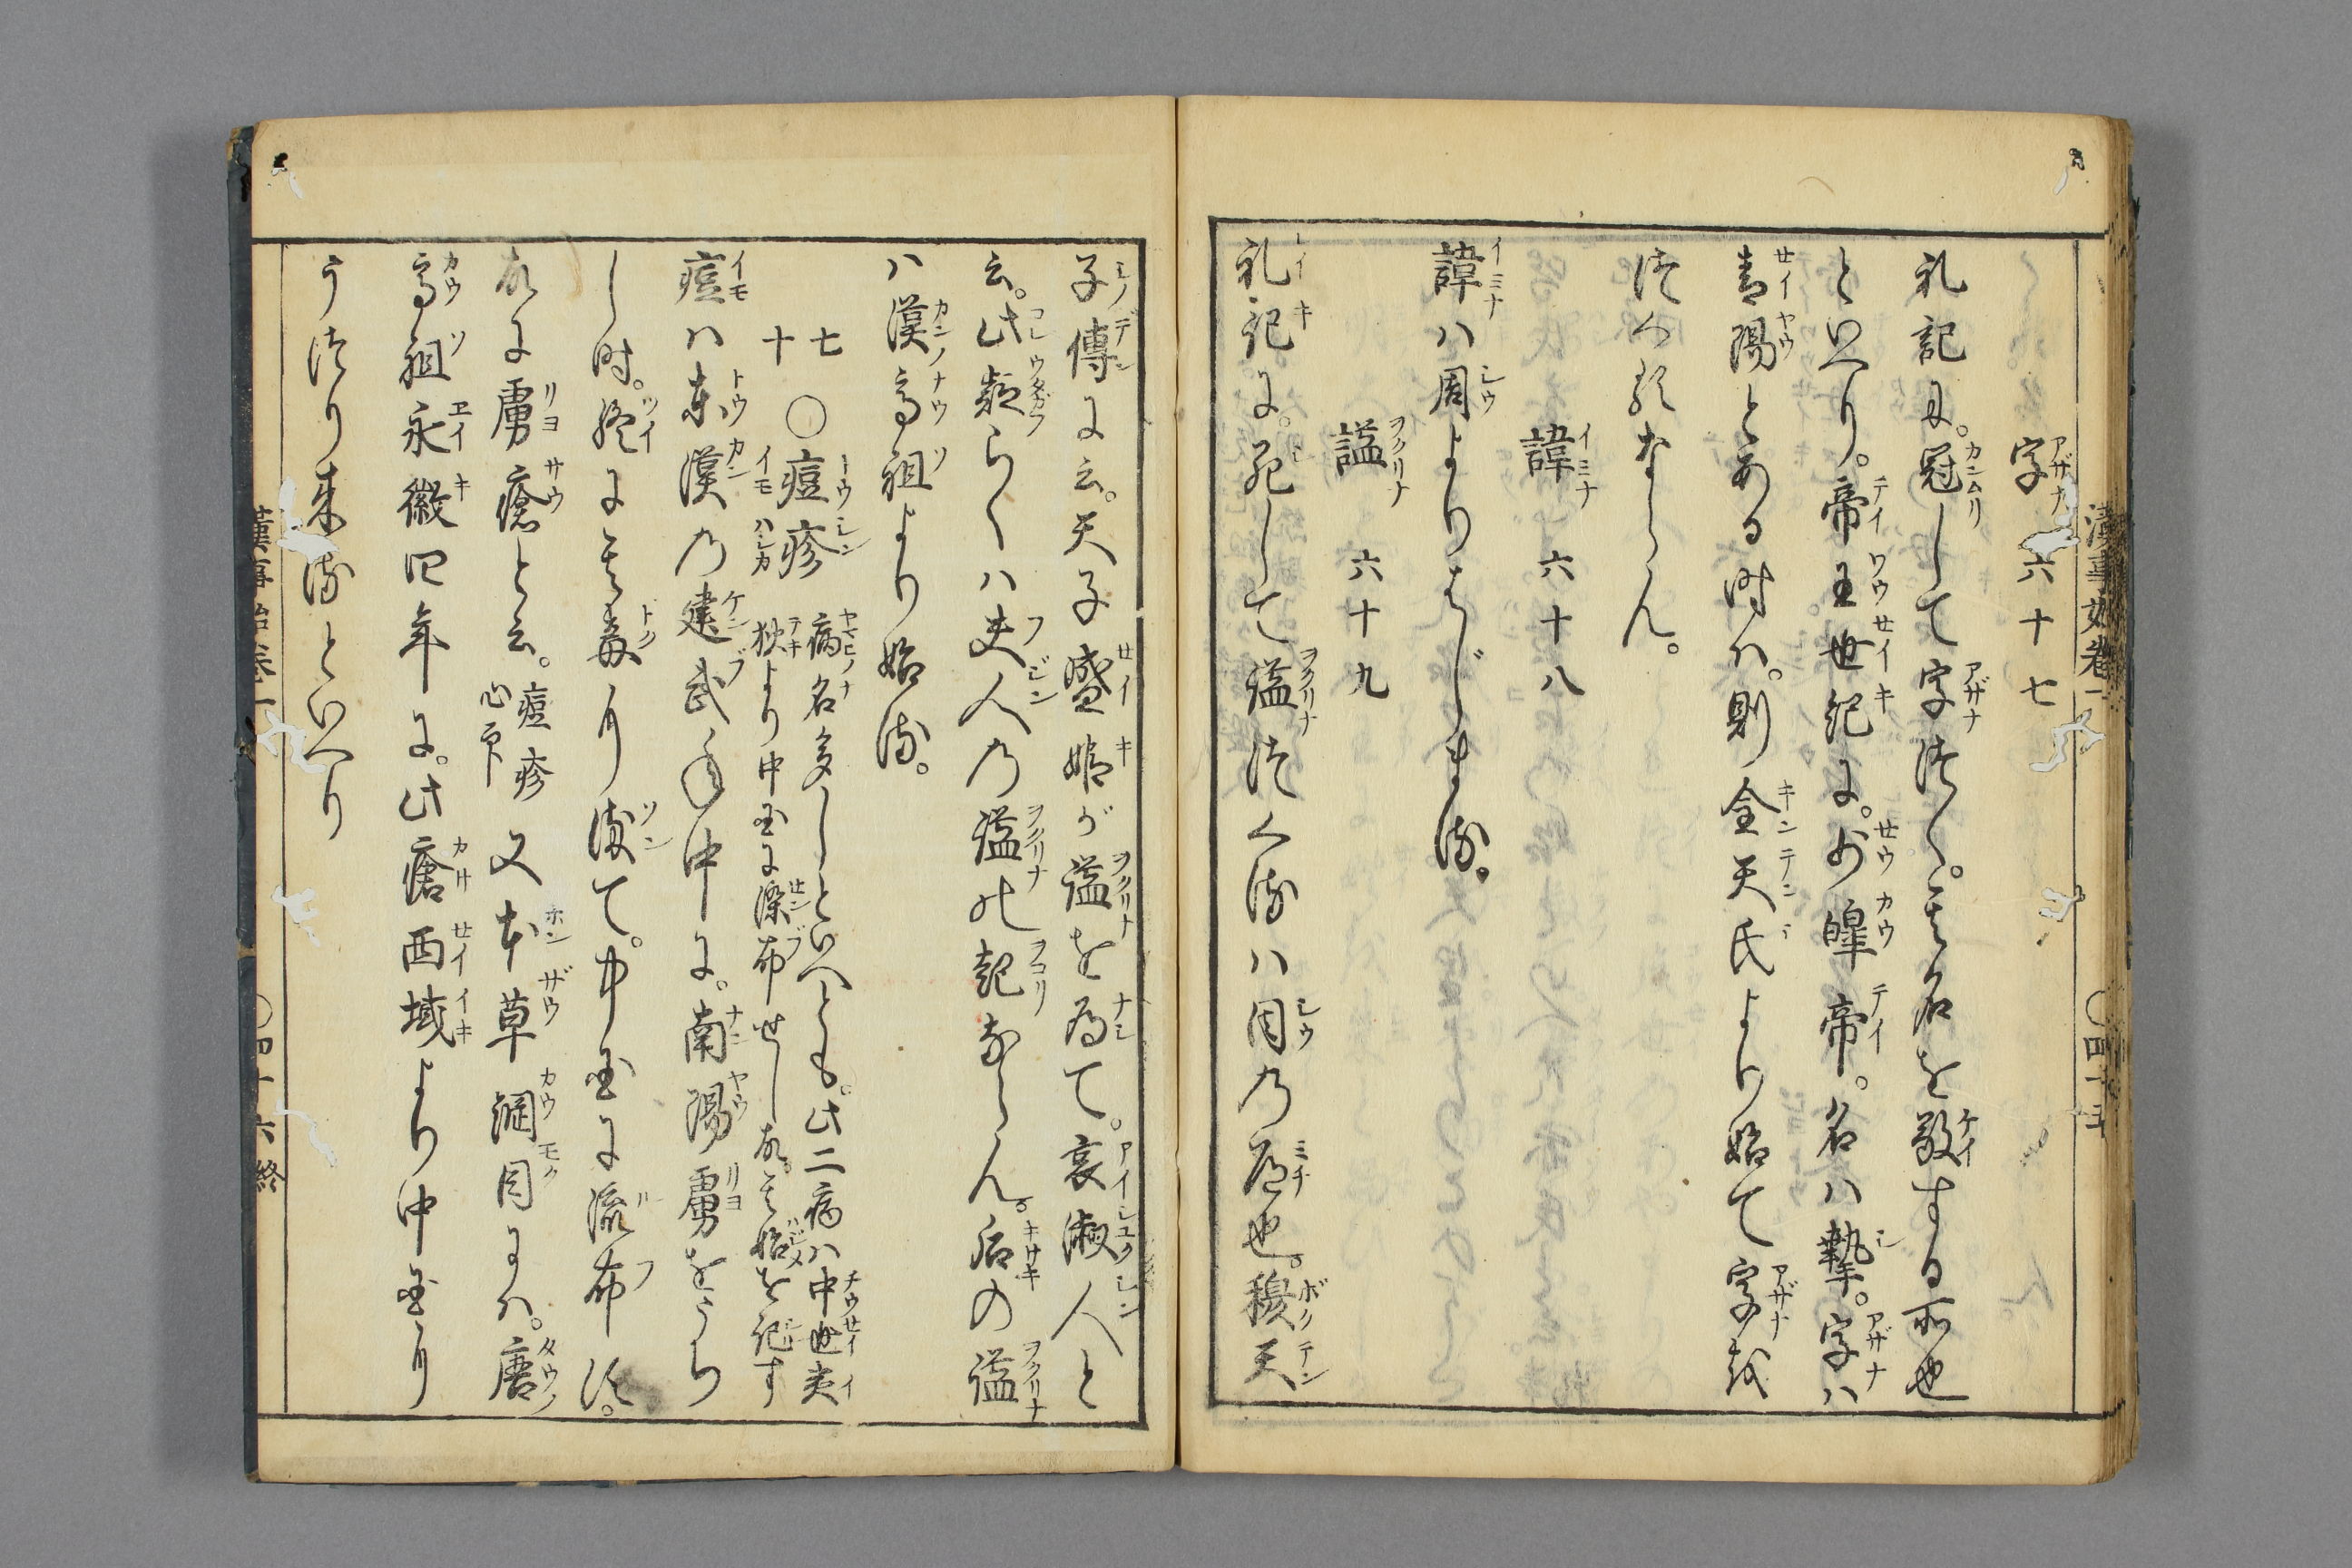 字 六十七
礼記に。冠して字つく。其名を敬する所也
といへり。帝王世紀に。少皥帝。名ハ摯。字ハ
青陽とある時ハ。則金天氏より始て字を
つくるならん。
諱 六十八
諱ハ周よりはじまる。
謚 六十九
礼記に。死して謚つくるハ周の道也。穆天
子傳に云。天子盛姫が謚を為て。哀淑人と
云。此疑らくハ夫人の謚の起ならん。后の謚
ハ漢高祖より始る。
七十 ○痘疹 イモ ハシカ 病名多しといへども。此二病ハ中世夷
狄より中国に染布せし故。其始を記す
痘ハ東漢の建武年中に。南陽虜をうち
し時。終に其毒に染て。中国に流布す。
故に虜瘡と云。痘疹心印 又本草綱目にハ。唐
高祖永徽四年に。此瘡西域より中国に
うつり来るといへり
漢事始巻一 ○四十五
漢事始巻一 ○四十六終